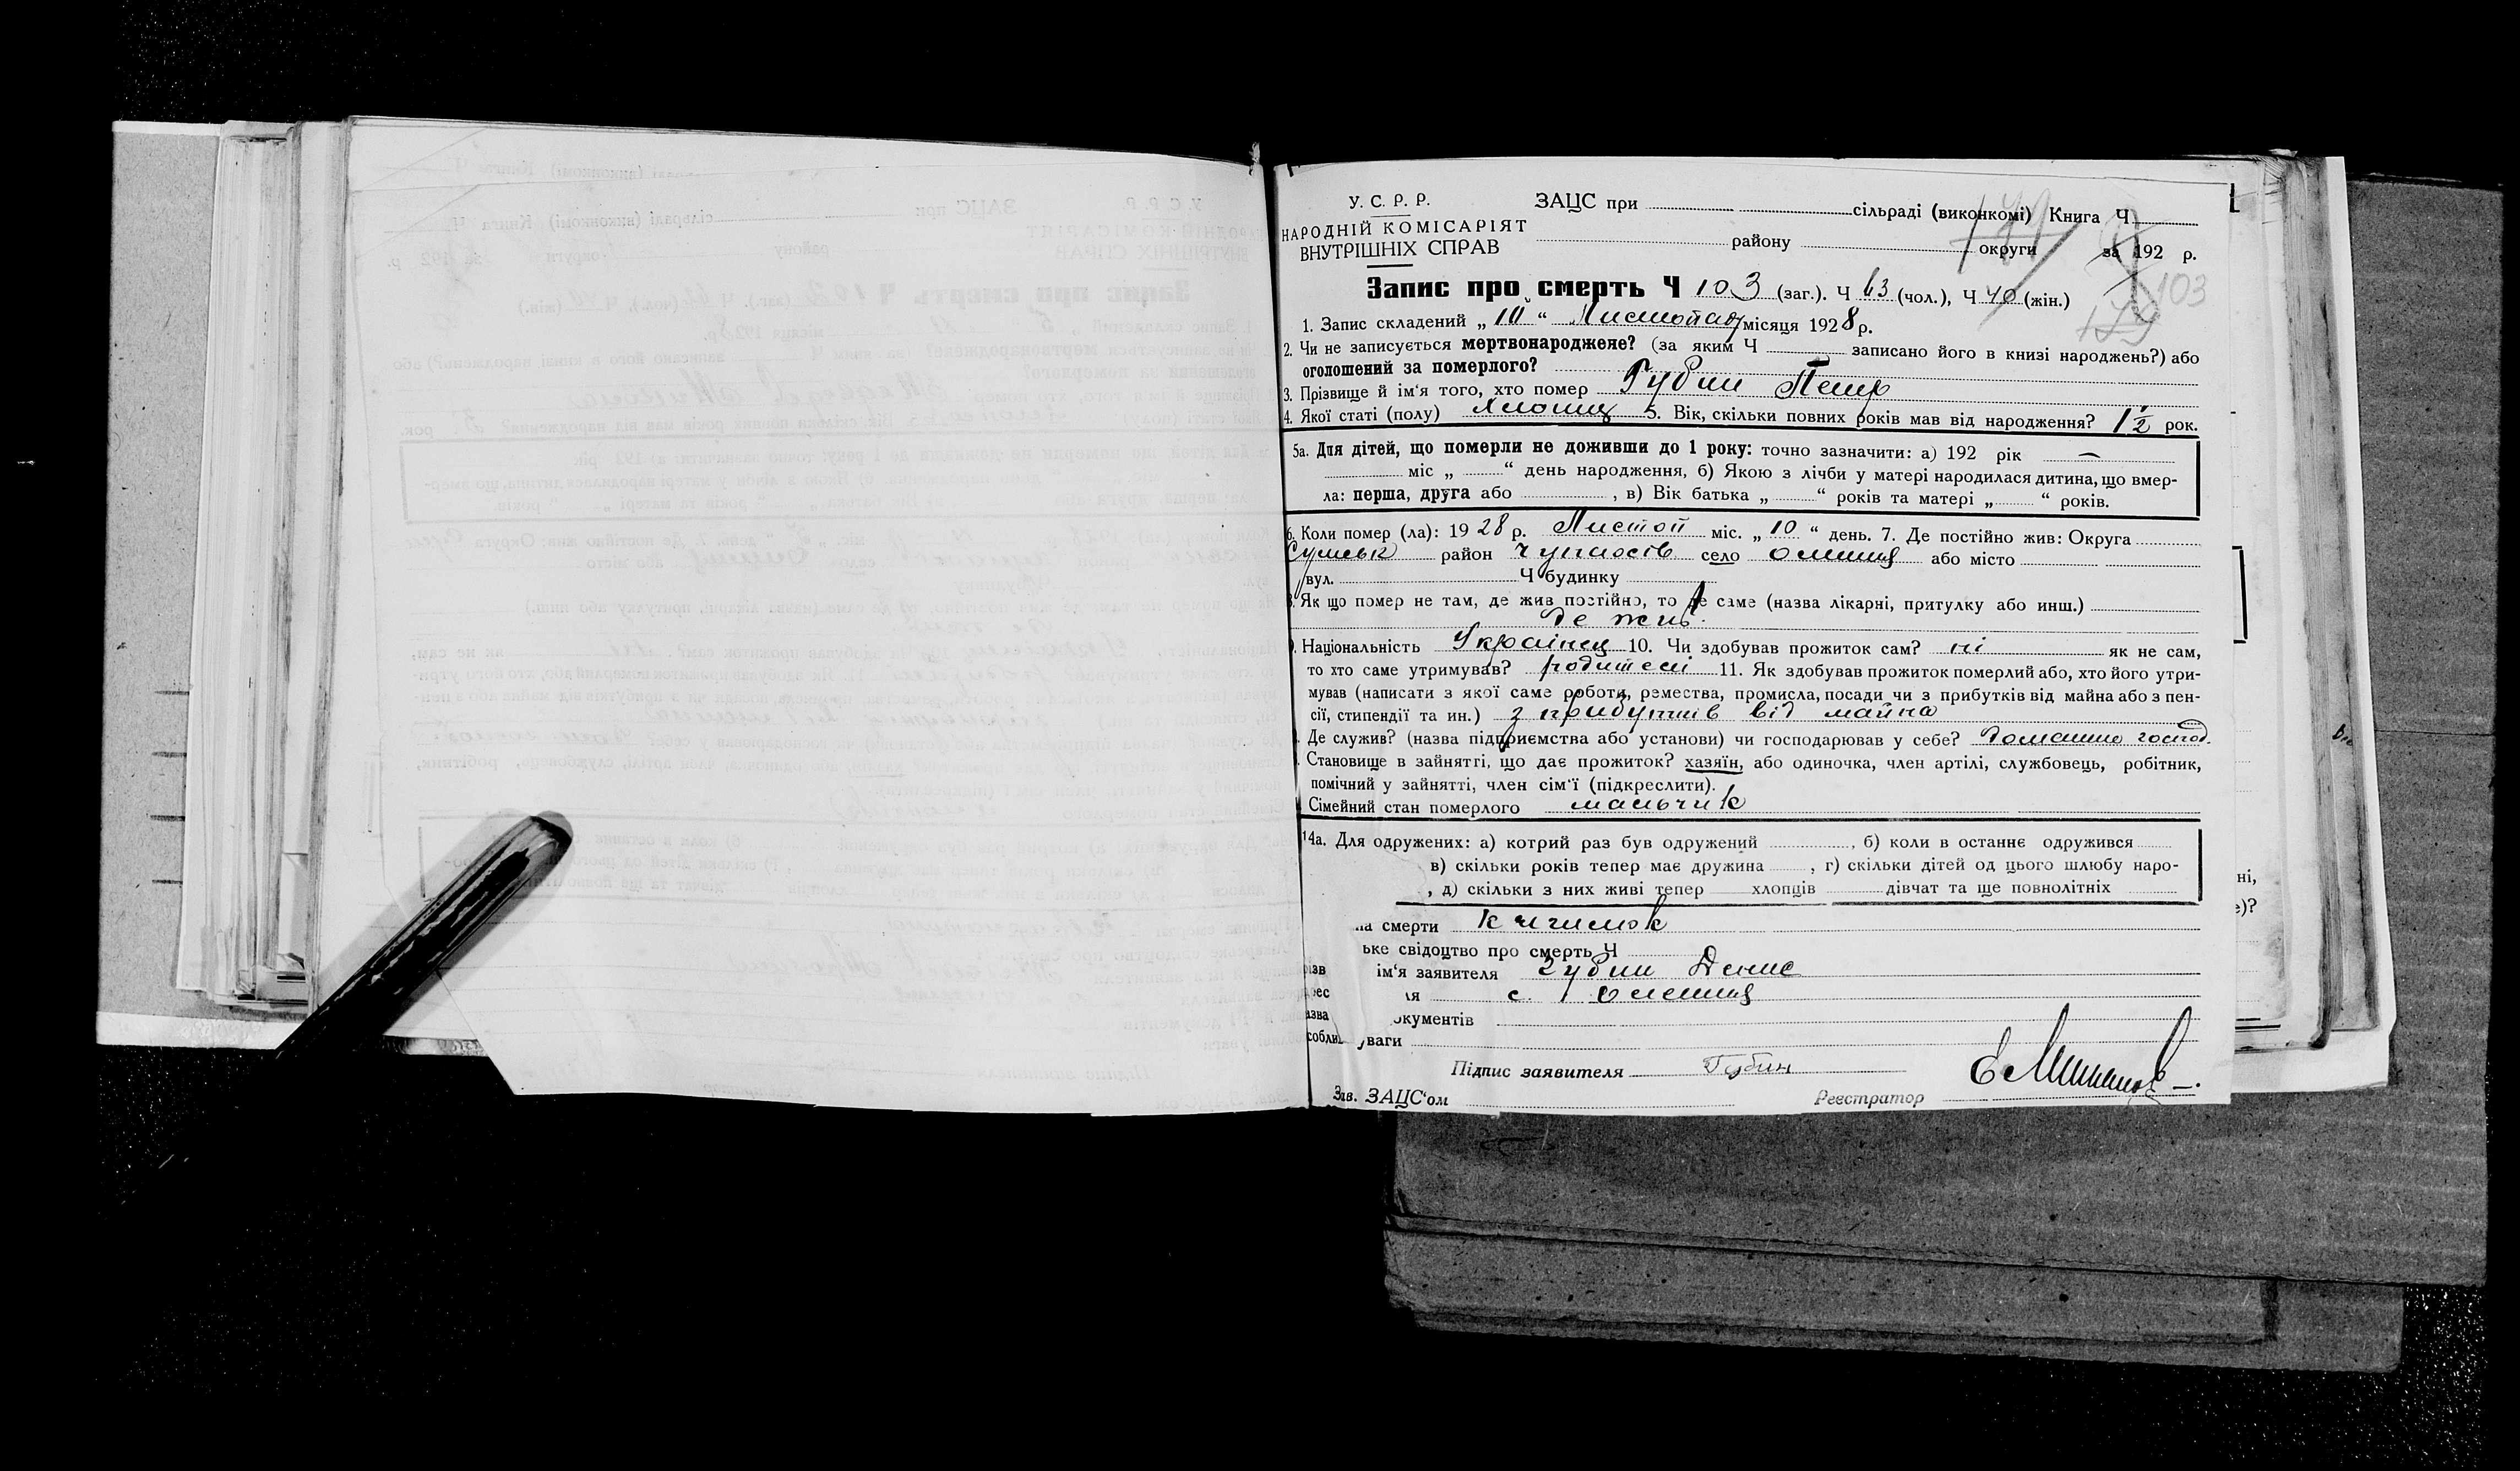 У. С. Р. Р.
НАРОДНІЙ КОМІСАРІЯТ
ВНУТРІШНІХ СПРАВ
ЗАЦС при сільраді (виконкомі) Книга Ч
району округи за 192 р.
103
Запис про смерть Ч 103 (заг.). Ч 63 (чол.), Ч 40 (жін.)
1. Запис складений „ 10 “ Листопад місяця 1928 р.
2. Чи не записується мертвонароджене? (за яким Ч записано його в книзі народжень?) або
оголошений за померлого?
3. Прізвище й ім‘я того, хто помер Губин Петр
4. Якої статі (полу) хлопец 5. Вік, скільки повних років мав від народження? 1 1/2 рок.
5а. Для дітей, що померли не доживши до 1 року: точно зазначити: а) 192 рік —
міс „ “ день народження, б) Якою з лічби у матері народилася дитина, що вмер-
ла: перша, друга або , в) Вік батька „ “ років та матері „ “ років.
6. Коли помер (ла): 1928 р. Листоп міс. „ 10 “ день. 7. Де постійно жив: Округа
Сумськ район Чупахів село Олешня або місто
вул. Ч будинку
8. Як що помер не там, де жив постійно, то де саме (назва лікарні, притулку або инш.)
де жив.
9. Національність Українец 10. Чи здобував прожиток сам? ні як не сам,
то хто саме утримував? родителі 11. Як здобував прожиток померлий або, хто його утри-
мував (написати з якої саме роботи, ремества, промисла, посади чи з прибутків від майна або з пен-
сії, стипендії та ин.) з прибутків від майна
Де служив? (назва підприємства або установи) чи господарював у себе? домашнє господ.
Становище в зайнятті, що дає прожиток? хазяїн, або одиночка, член артілі, службовець, робітник,
помічний у зайнятті, член сім‘ї (підкреслити).
Сімейний стан померлого мальчик
14а. Для одружених: а) котрий раз був одружений , б) коли в останнє одружився
в) скільки років тепер має дружина , г) скільки дітей од цього шлюбу наро-
, д) скільки з них живі тепер хлопців дівчат та ще повнолітніх
на смерти
ьке свідоцтво про смерть Ч
ізв ім‘я заявителя Губин Денис
рес ля с. Олешня
азва окументів
собли уваги
Підпис заявителя Губин
Зав. ЗАЦС‘ом Реєстратор